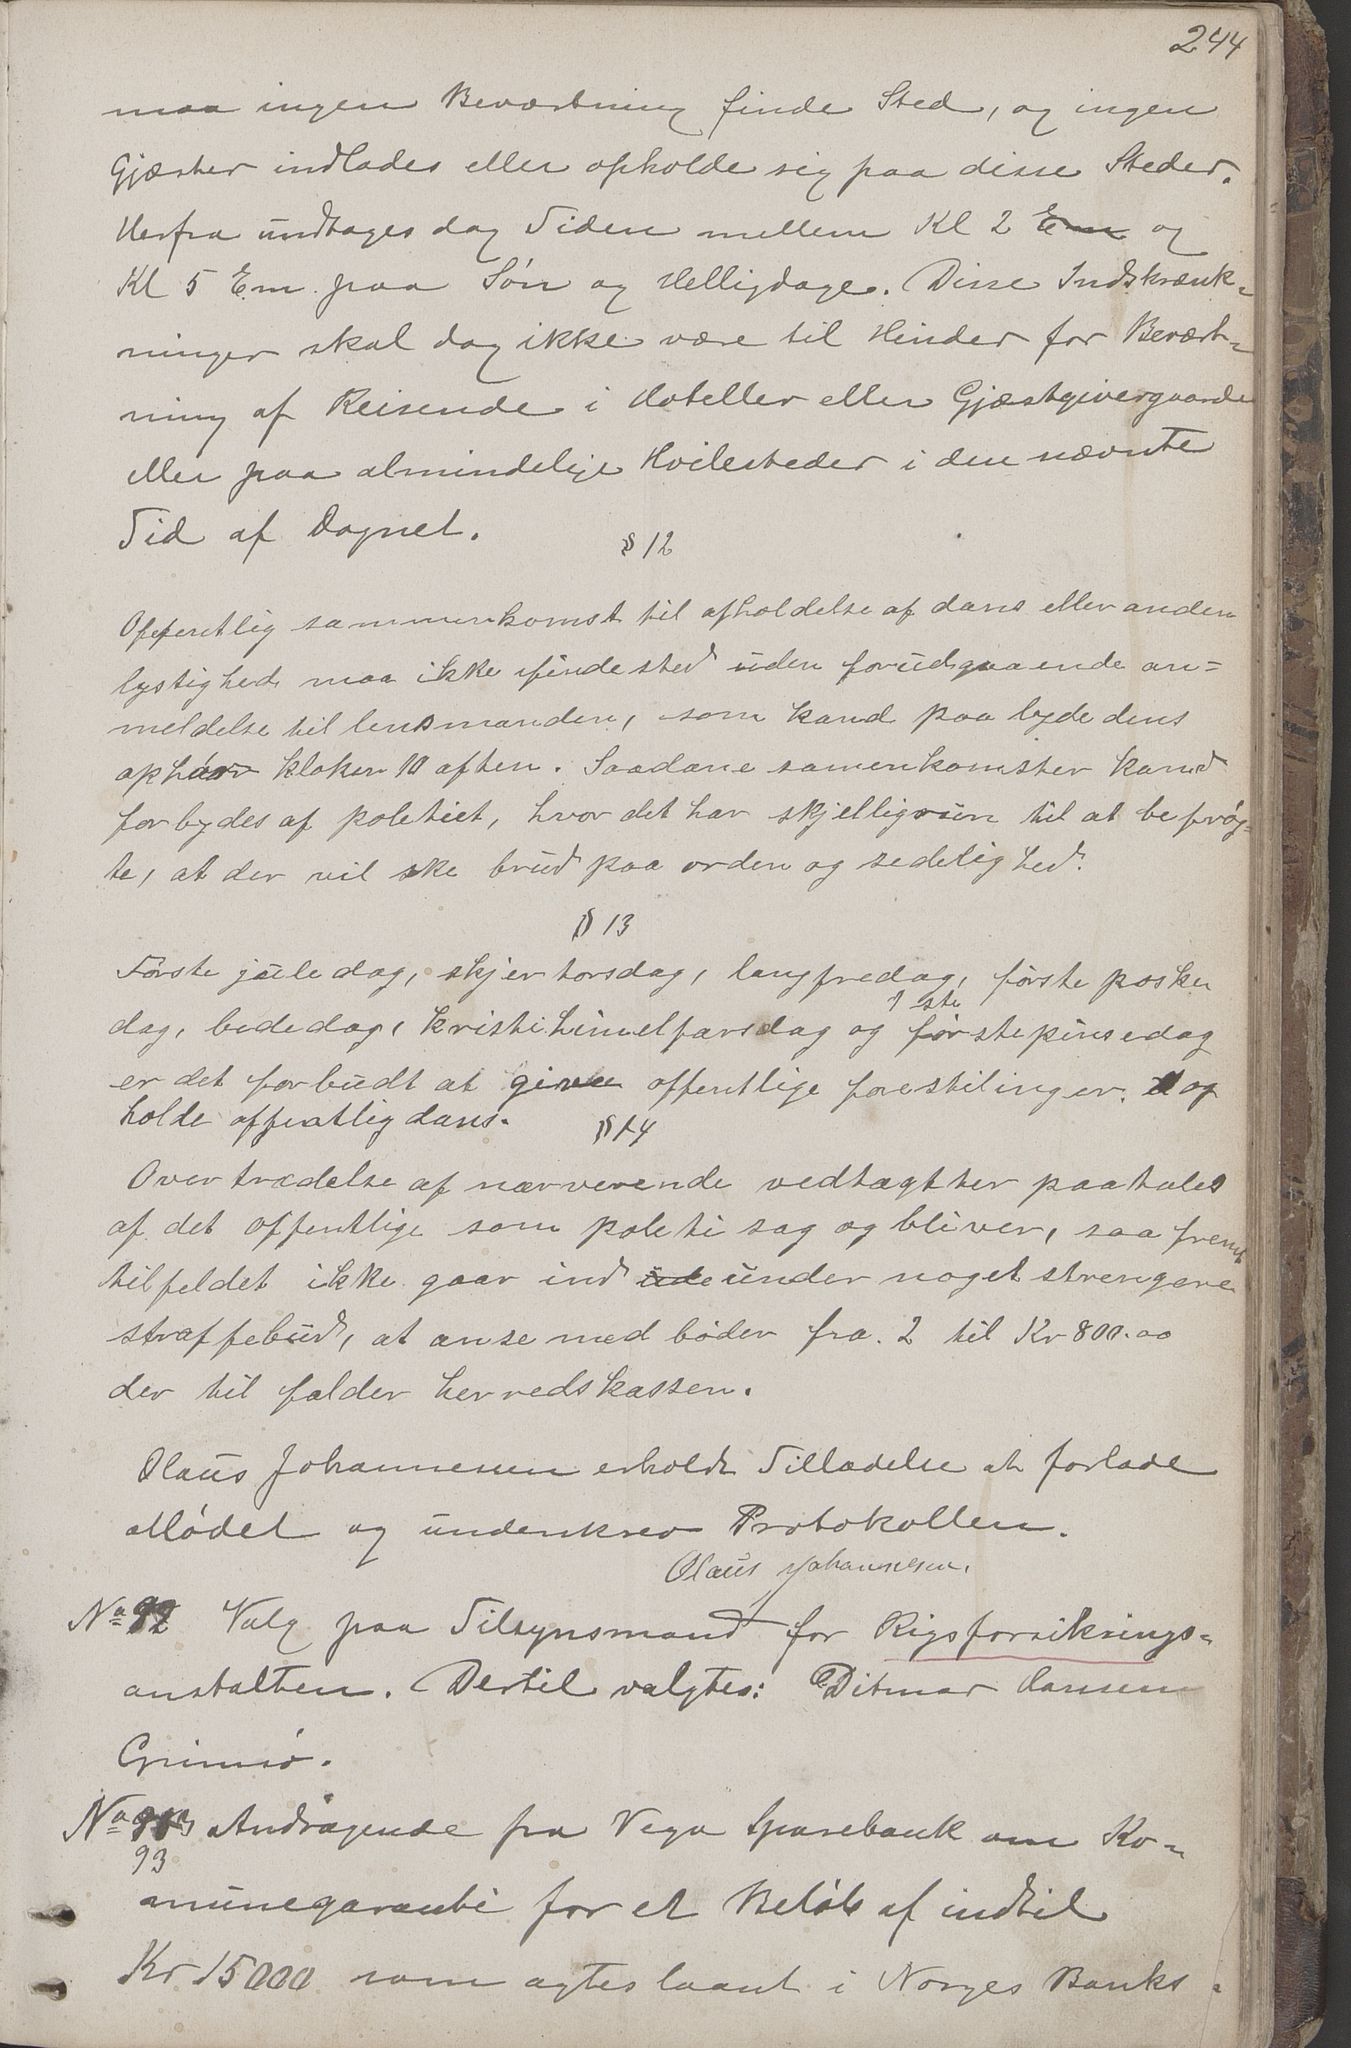 244
maa ingen Beværtning finde Sted, og ingen
Gjæster indlades eller opholde sig paa disse Steder.
Herfra undtages dog Tiden mellem Kl 2 Em og
Kl 5 Em paa Søn og Helligdage. Disse Indskrænk-
ninger skal dog ikke være til Hinder for Bevært-
ning af Reisende i Hoteller eller Gjæstgivergaarde
eller paa almindelige Hvilesteder i den nævnte
Tid af Døgnet.
§ 12
Offentlig sammenkomst til afholdelse af dans eller anden
lystighed maa ikke finde sted uden forudgaaende an-
meldelse til lensmanden, som kand paa lyde dens
ophør kloken 10 aften. Saadane samenkomster kand
forbydes af poletiet, hvor det har skjelligrun til at befrøg-
te, at der vil ske brud paa orden og sedelighed.
§ 13
Første juledag, skjertorsdag, langfredag, første poske
1 ste
dag, bededag, kristihimelfarsdag og førstepinsedag
er det forbudt at give offentlige forestilinger og
holde offentlig dans.
§ 14
Overtrædelse af nærverende vedtægtter paatales
af det offentlige som poleti sag og bliver, saa fremt
tilfeldet ikke gaar ind ude under noget strengere
straffebud, at anse med bøder fra 2 til Kr 800.00
der til falder herredskassen.
Olaus Johannesen erholdt Tilladelse at forlade
Mødet og underskrev Protokollen.
Olaus Johannesen.
No 92 Valg paa Tilsynsmand for Rigsforsikrings-
anstalten. Dertil valgtes: Ditmar Hansen
Grimsø.
No 93 Andragende fra Vega Sparebank om Ko-
93
munegaranti for et Beløb af indtil
Kr 15000 som agtes laant i Norges Banks